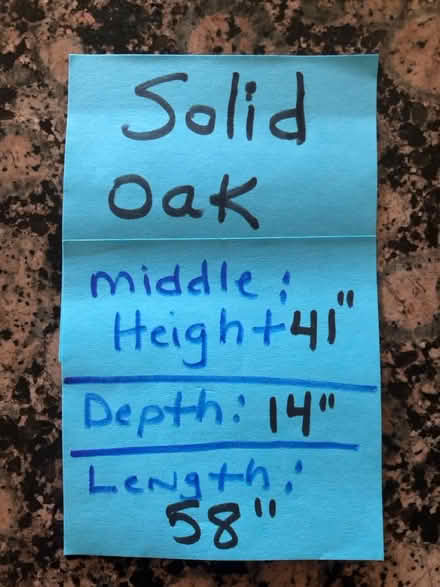 Solid
Oak
middle:
Height 41"
Depth: 14"
Length:
58"